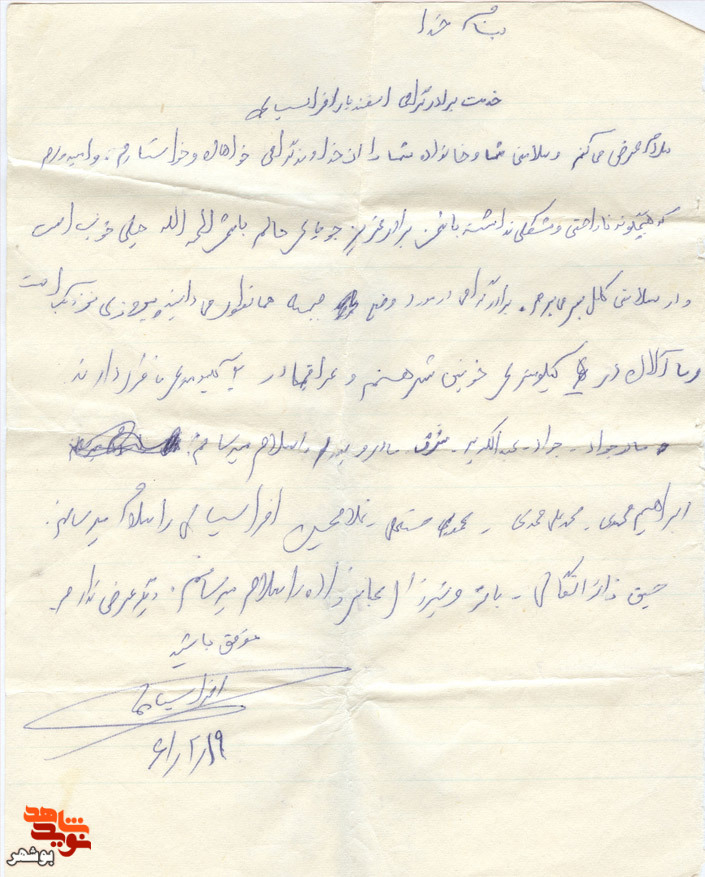 بنام خدا
خدمت برادر گرامی اسفندیار افراسیابی
سلام عرض می کنم و سلامتی شما و خانواده شما را از خداوند گرامی خواهان و خواستارم. و امیدورم
که هیچگونه ناراحتی و مشکلی نداشته باشی. برادر عزیز جویای حالم باشی الحمد الله خیلی خوب است
و در سلامتی کامل بسر می برم. برادر گرامی در مورد وضع جبهه همانطور می دانید پیروزی نزدیک است
و ما الان در کیلومتری خونین شهر هستیم و عراقیها در کیلومتری ما قرار دارند
مادر جواد - جواد - عبدالکریم - مادر و پدر را سلام میرسانم.
ابراهیم محمدی - محمد علی محمدی - محمد - غلامحسین افراسیابی را سلام میرسانم.
حسین - باقر و عباس زاده را سلام میرسانم. دیگر عرضی ندارم.
موفق باشید
افراسیابی
۶۱/۲/۱۹
شاهد
نوید
بوشهر